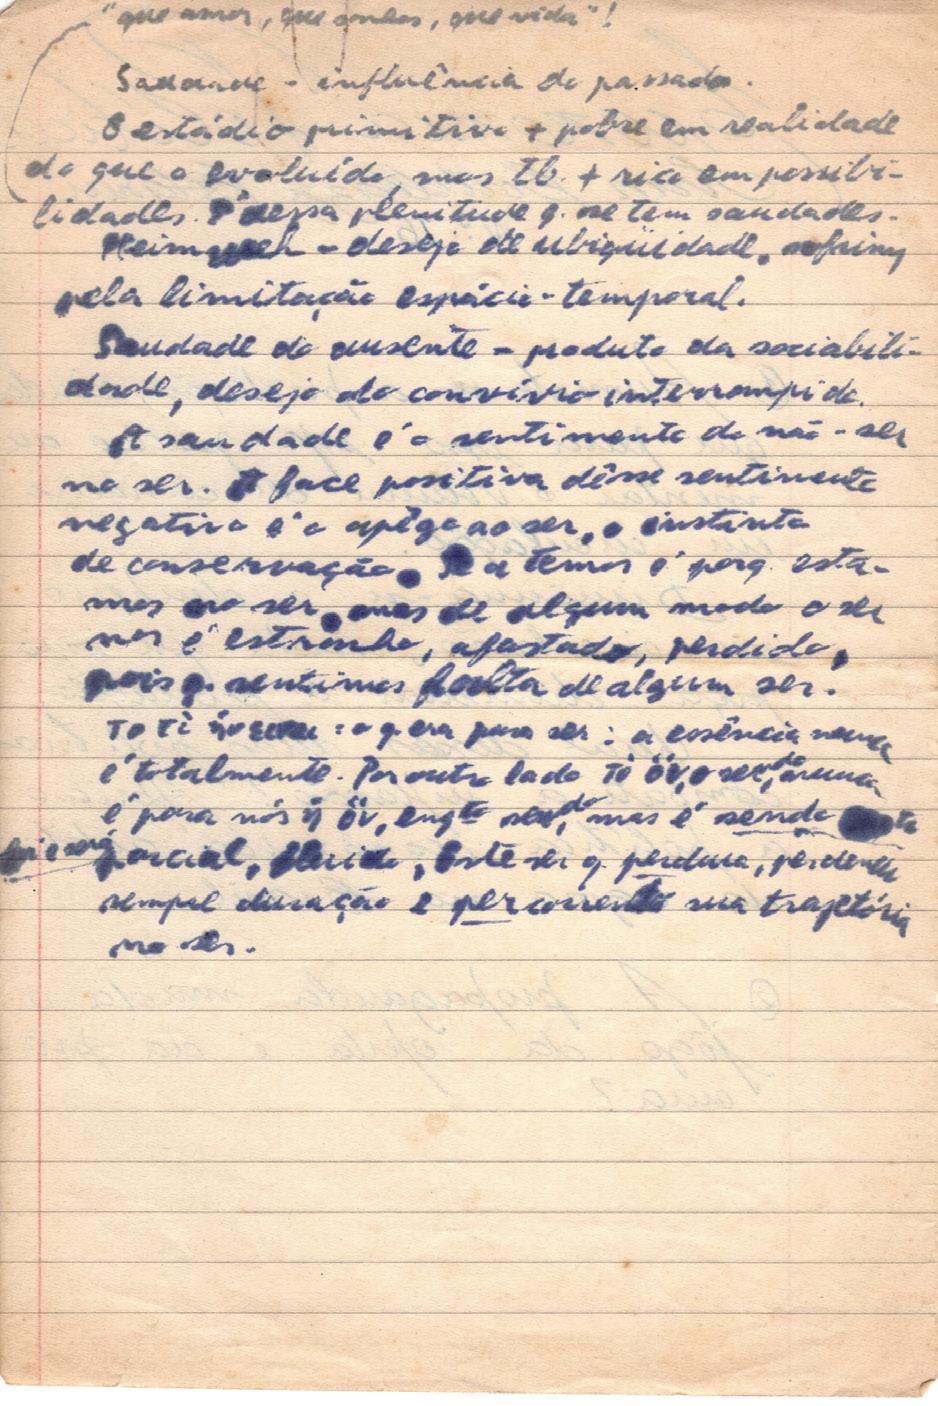 "que amor, que sonhos, que vida"!
Saudade - influência do passado.
O estádio primitivo + pobre em realidade
do que o evoluído, mas tb. + rico em possibi-
lidades. É dessa plenitude q. se tem saudades.
Heimweh - desejo de ubiqüidade,
pela limitação espácio-temporal.
Saudade do ausente - produto da sociabili-
dade, desejo do convívio interrompido.
A saudade é o sentimento do não-ser
no ser. A face positiva dêsse sentimento
negativo é o apêgo ao ser, o instinto
de conservação. Se a temos é porq. esta-
mos no ser, mas de algum modo o ser
nos é estranho, afastado, perdido,
pois q. sentimos falta de algum ser.
το τί ἦν εἶναι : o q. era para ser : a essência nunca
é totalmente. Por outro lado τὸ ὄν, o sendo, nunca
é para nós ᾗ ὄν, enqto sendo, mas é sendo
parcial, fluido, Êste ser q. perdura, perdendo
sempre duração e percorrendo sua trajetória
no ser.